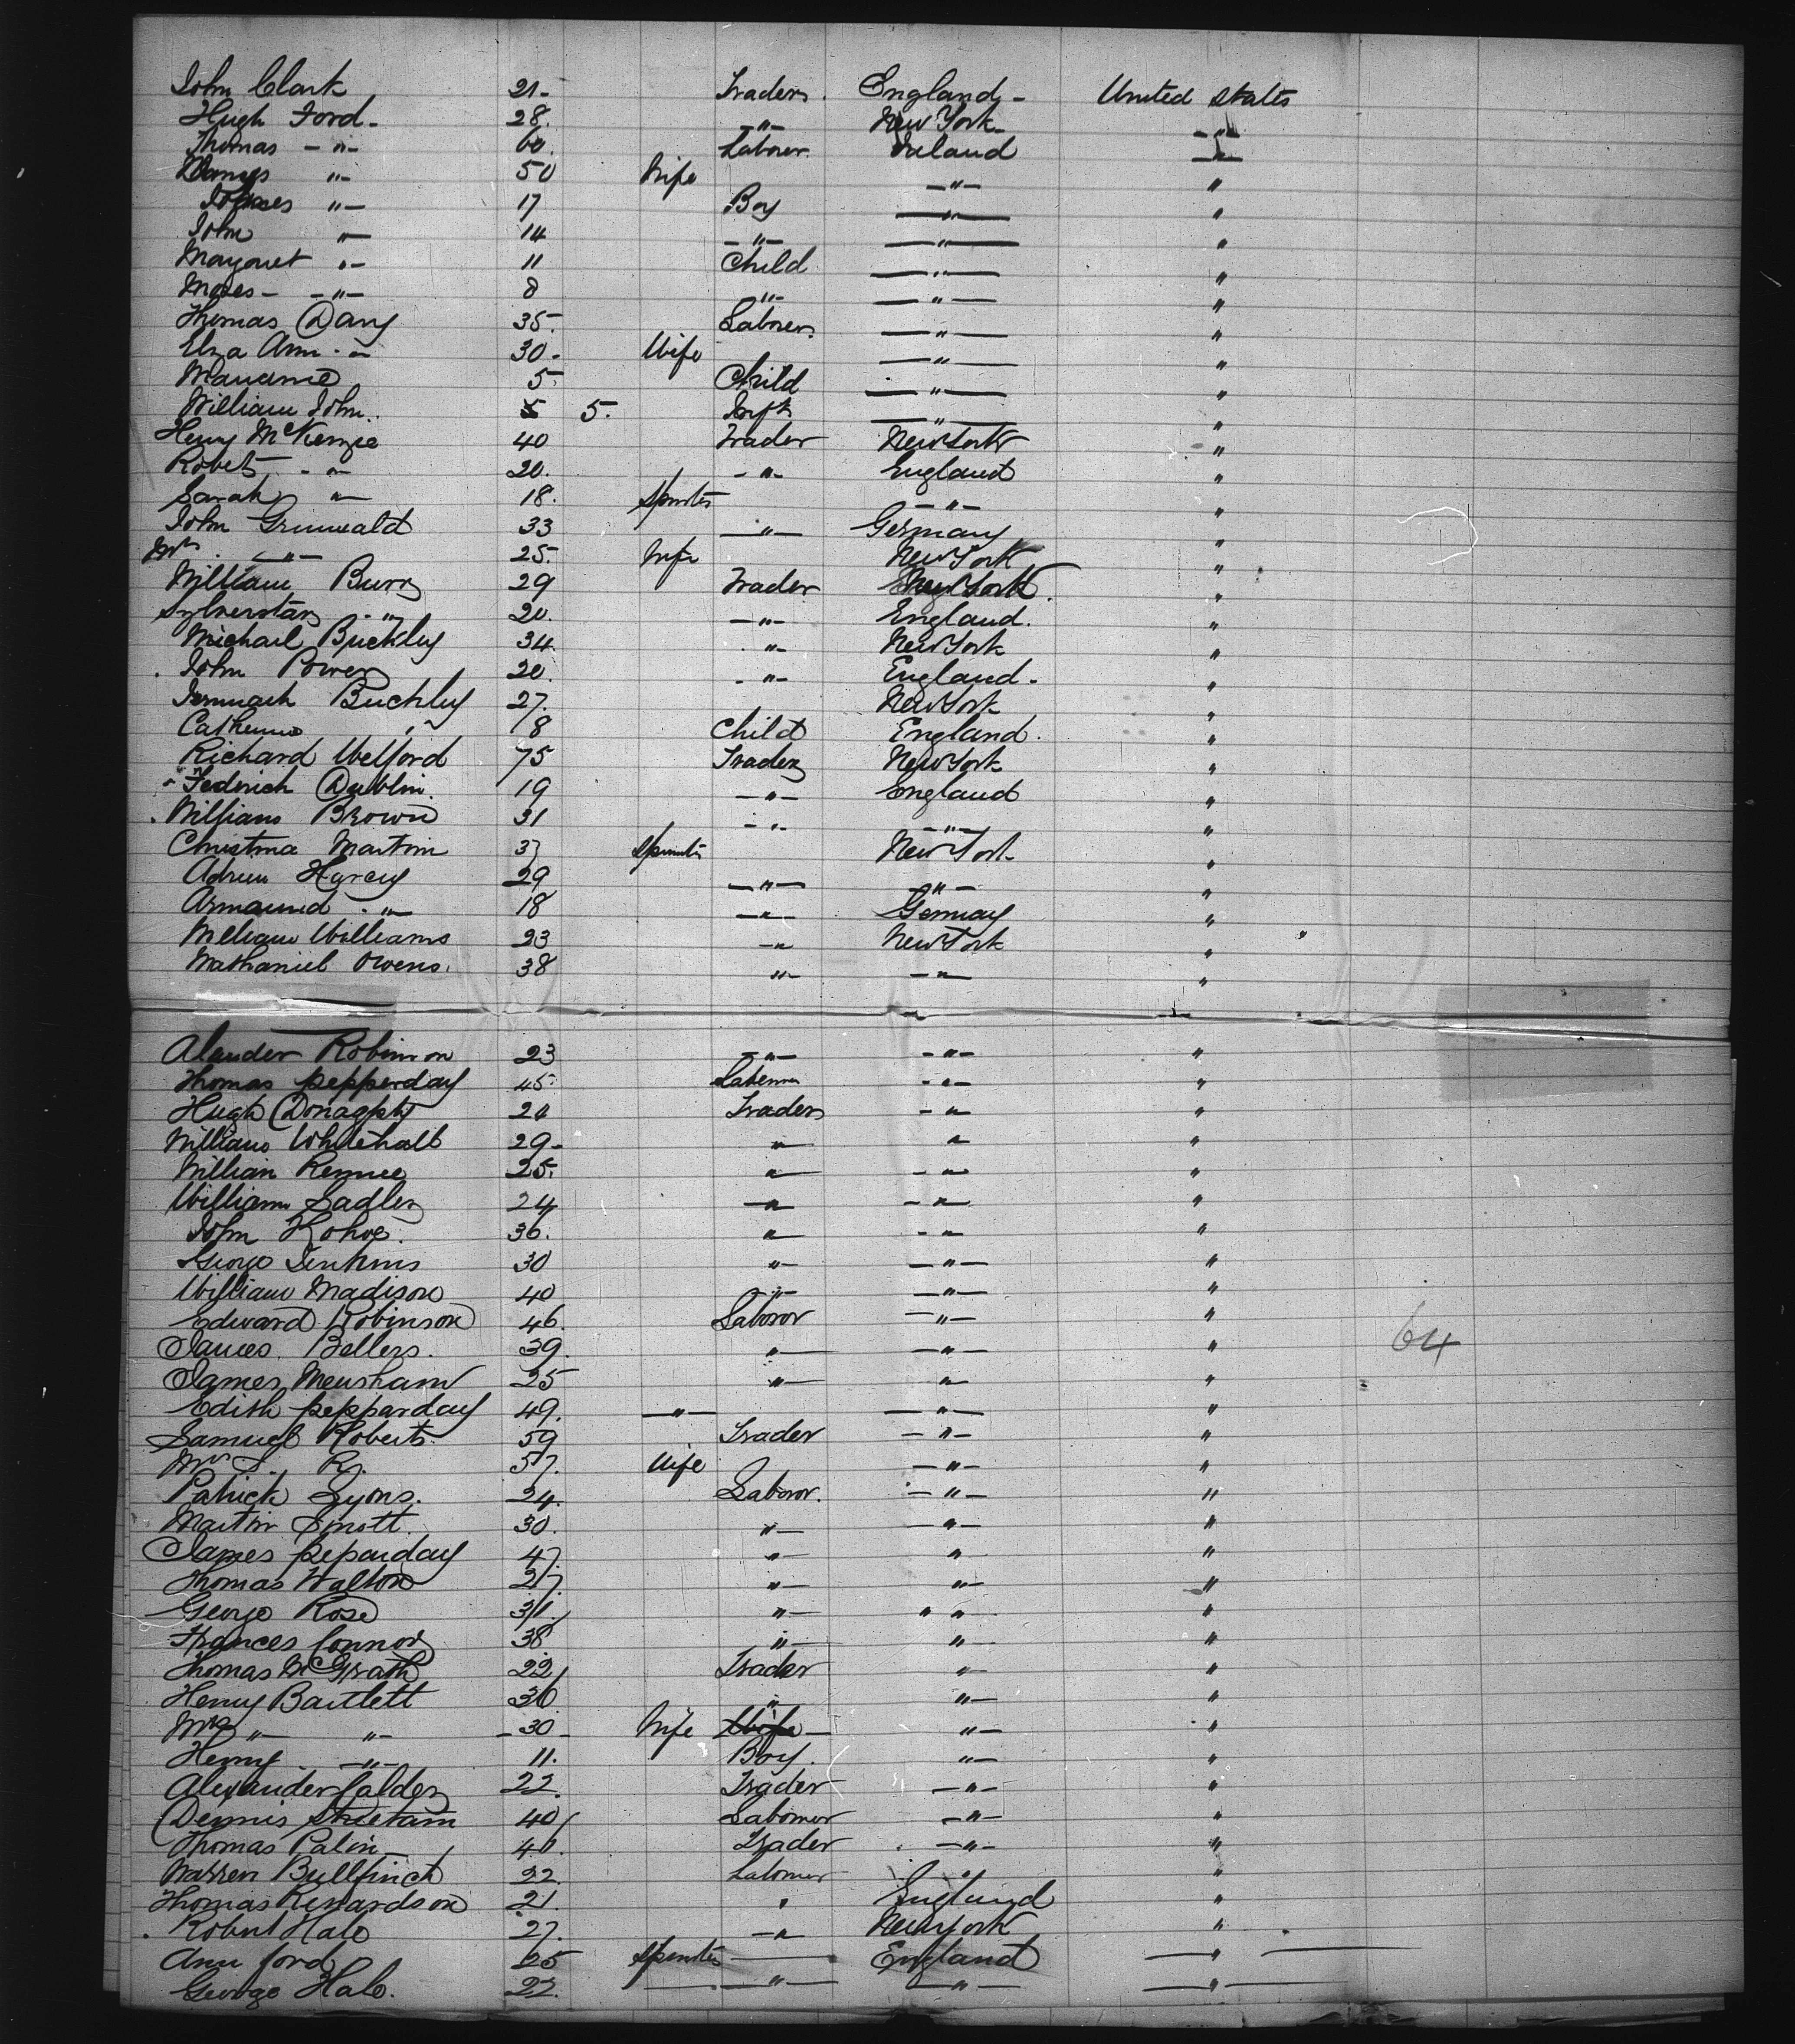 John Clark 21- Trader England - United States
Hugh Ford - 28. -"- New York - -"-
Thomas -"- 60. Laborer Ireland -"-
"- 50 Wife -"- "
"- 17 Boy -"- "
John "- 14 -"- -"- "
Margaret "- 11 Child -"- "
Moses - -"- 8 -"- -"- "
Thomas Dany 35. Laborer -"- "
Elza Ann - " 30- Wife -"- "
5- Child -"- "
William John 5 5. Inft -"- "
Henry McKenzie 40 Trader New York "
Robert -"- 20. -"- England "
Sarah "- 18. Spinster -"- "
John Grunwald 33 -"- Germany "
Mrs. -"- 25. Wife New York "
William Burr 29 Trader New York. "
-"- 20. -"- England. "
Michail Buckley 34 "- New York "
John Power 20. -"- England - "
Buckley 27. New York "
Catherine " 8 Child England. "
Richard Welford 75 Trader New York "
Fedrich Dublin. 19 -"- England "
William Brown 31 -"- -"- "
Christina Martin 37 Spinster New York "
29 -"- -"- "
-"- 18 -"- Germay "
William Williams 23 -"- New York "
Nathaniel Owens. 38 "- -"- "
Alander Robinson 23 -"- -"- "
Thomas Pepperday 45- -"- "
Hugh Donaghty 20 Trader -"- "
William Whitehall 29- "- " "
William Rennie 25. "- -"- "
William Sadler 24 -"- -"- "
John Kohoe. 36. "- -"- "
George Jenkins 30 "- -"- "
William Madison 40 -"- -"- "
Edward Robinson 46. Laboror -"- "
James Bellers. 39. "- -"- " 64
James Mensham 25 "- "- "
Edith Pepparday 49. -"- -"- "
Samuel Roberts. 59 Trader -"- "
Mrs S. R. 57. Wife -"- "
Patrick Lyons. 24. Laboror. -"- "
Martin Smott. 30. "- -"- "
James Pepparday 47. "- " "
Thomas Walton 27. "- "- "
George Rose 31. "- " " "
Frances Connor 38 "- "- "
Thomas McGrath 22 Trader "- "
Henry Bartlett 36 " "- "
Mrs "- "- -30- Wife Wife - "- "
Henry -"- 11. Boy. "- "
Alexander Calder 22. Trader -"- "
Dennis 40 Laborer -"- "
Thomas Palin 40. Trader -"- "
Warren Bullfinch 22. Laborer " "
Thomas Renardson 21. " England "
Robert Hale 27. -"- New York "
Ann Ford 25 Spinster - England -"-
George Hale. 22. -"- -"- -"-